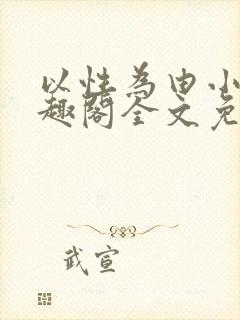 以性为由小
趣阁全文免
武宣